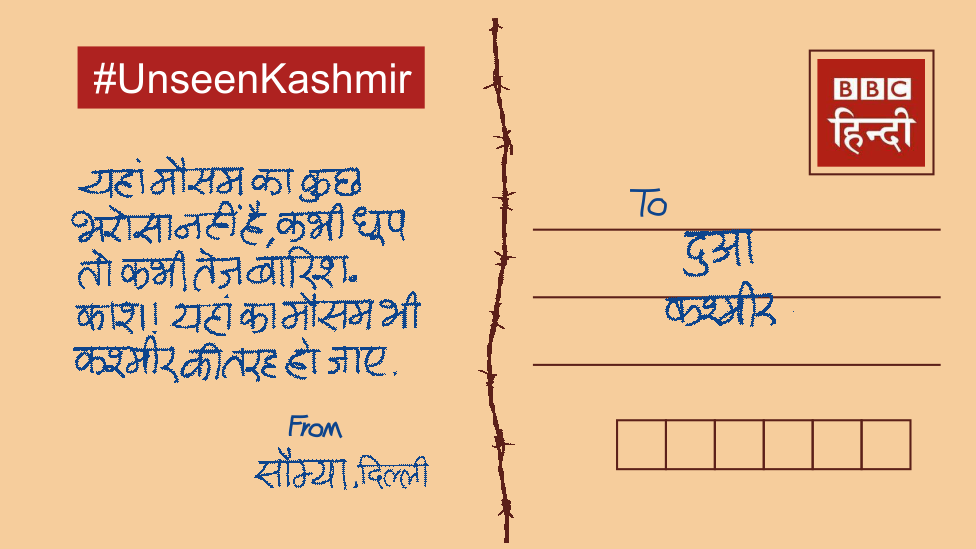 #UnseenKashmir
यहां मौसम का कुछ
भरोसा नहीं है, कभी धूप
तो कभी तेज बारिश.
काश! यहां का मौसम भी
कश्मीर की तरह हो जाए.
From
सौम्या, दिल्ली
BBC
हिन्दी
To
दुआ
कश्मीर